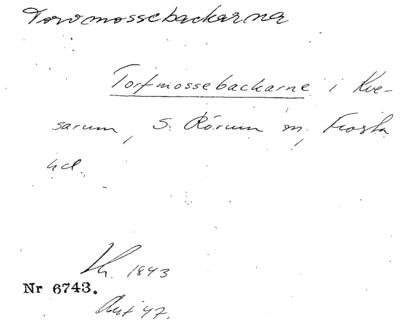 Torvmossebackarna
Torfmossebackarne i Kve-
sarum, S. Rörum sn, Frosta
hd.
1843
Nr 6743.
Akt 47.